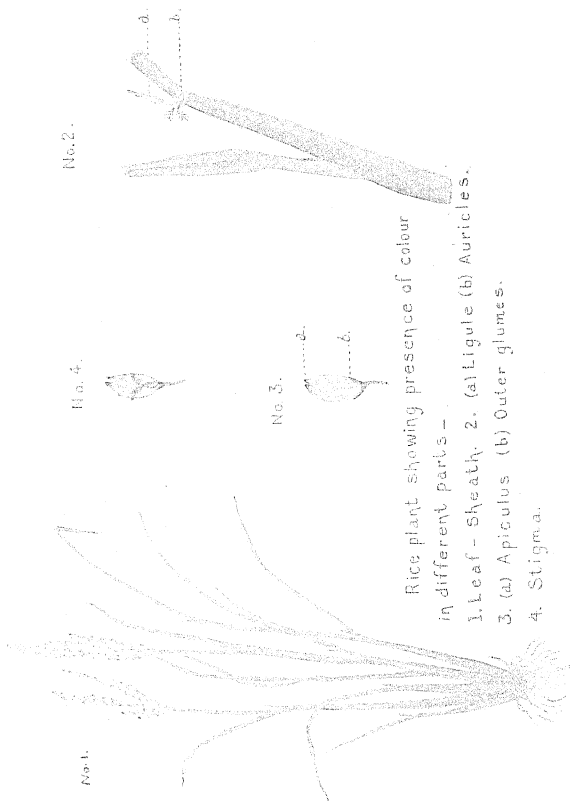 No. 1.
No. 2.
a.
b.
No. 4.
No. 3.
a.
b.
Rice plant showing presence of colour
in different parts –
1. Leaf - Sheath. 2. (a) Ligule (b) Auricles.
3. (a) Apiculus (b) Outer glumes.
4. Stigma.